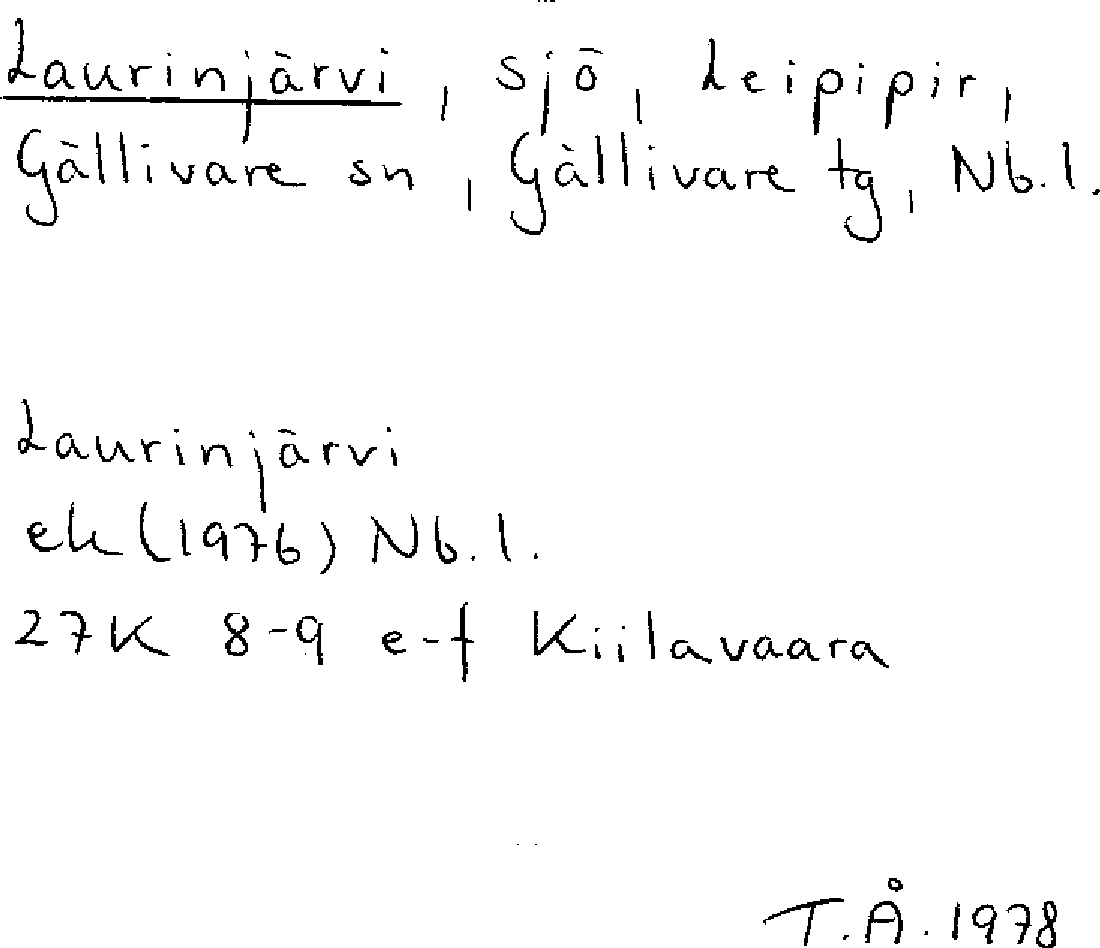 Laurinjärvi, sjö, Leipipir,
Gällivare sn, Gällivare tg, Nb.l.
Laurinjärvi
ek (1976) Nb.l.
27K 8-9 e-f Kiilavaara
T.Å. 1978